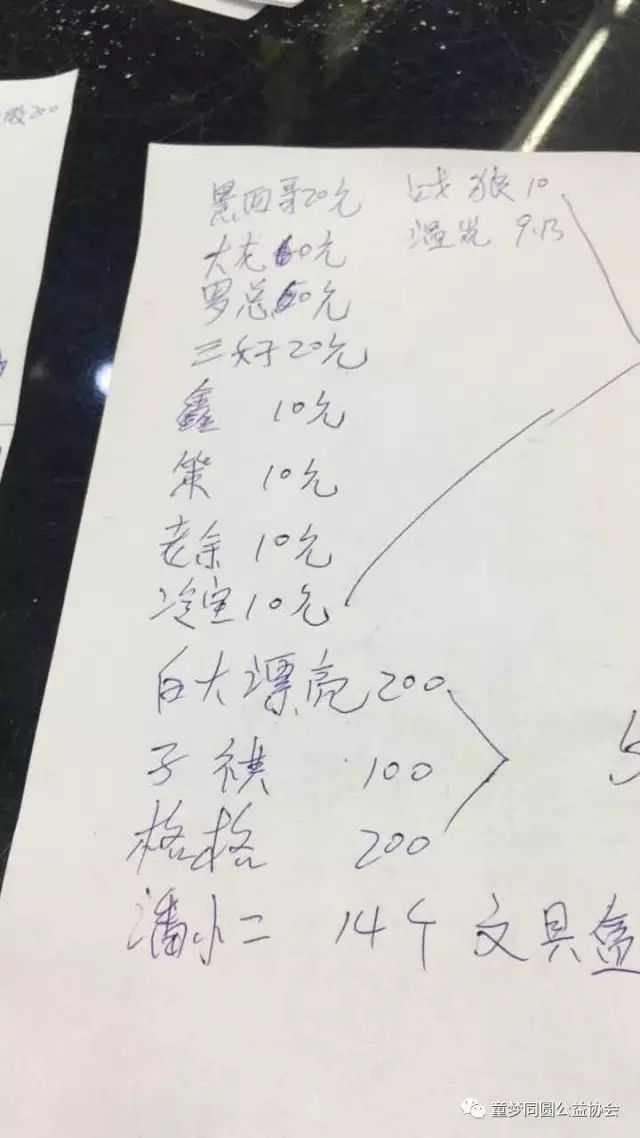 200
黑四哥20元 战狼10
大龙60元 温先 9.13
罗总60元
三好20元
鑫 10元
策 10元
老余 10元
冷宝10元
白大漂亮 200
子祺 100
格格 200
潘小二 14个 文具盒
童梦同圆公益协会